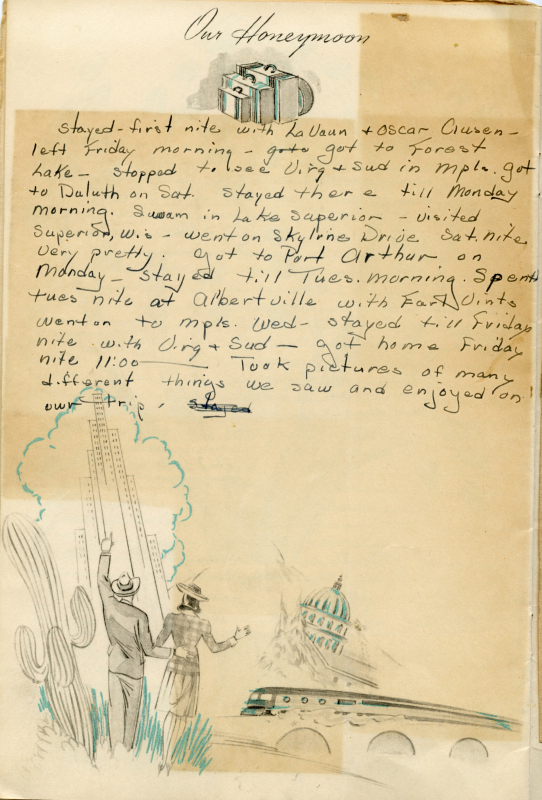 Our Honeymoon
Stayed-first nite with LaVaun + Oscar Clusen-
left Friday morning - goto got to Forest
Lake- stopped to see Virg + Sud in mpls. got
to Duluth on Sat. stayed there till Monday
morning. Swam in Lake Superior - visited
Superior, Wis - went on Skyline Drive Sat. nite
Very pretty. Got to Port Arthur on
Monday- stayed till Tues. morning. Spent
tues nite at Albertville with
went on to mpls. Wed- stayed till Friday
nite with Virg + Sud- got home Friday
nite 11:00 Took pictures of many
different things we saw and enjoyed on
our trip. stayed